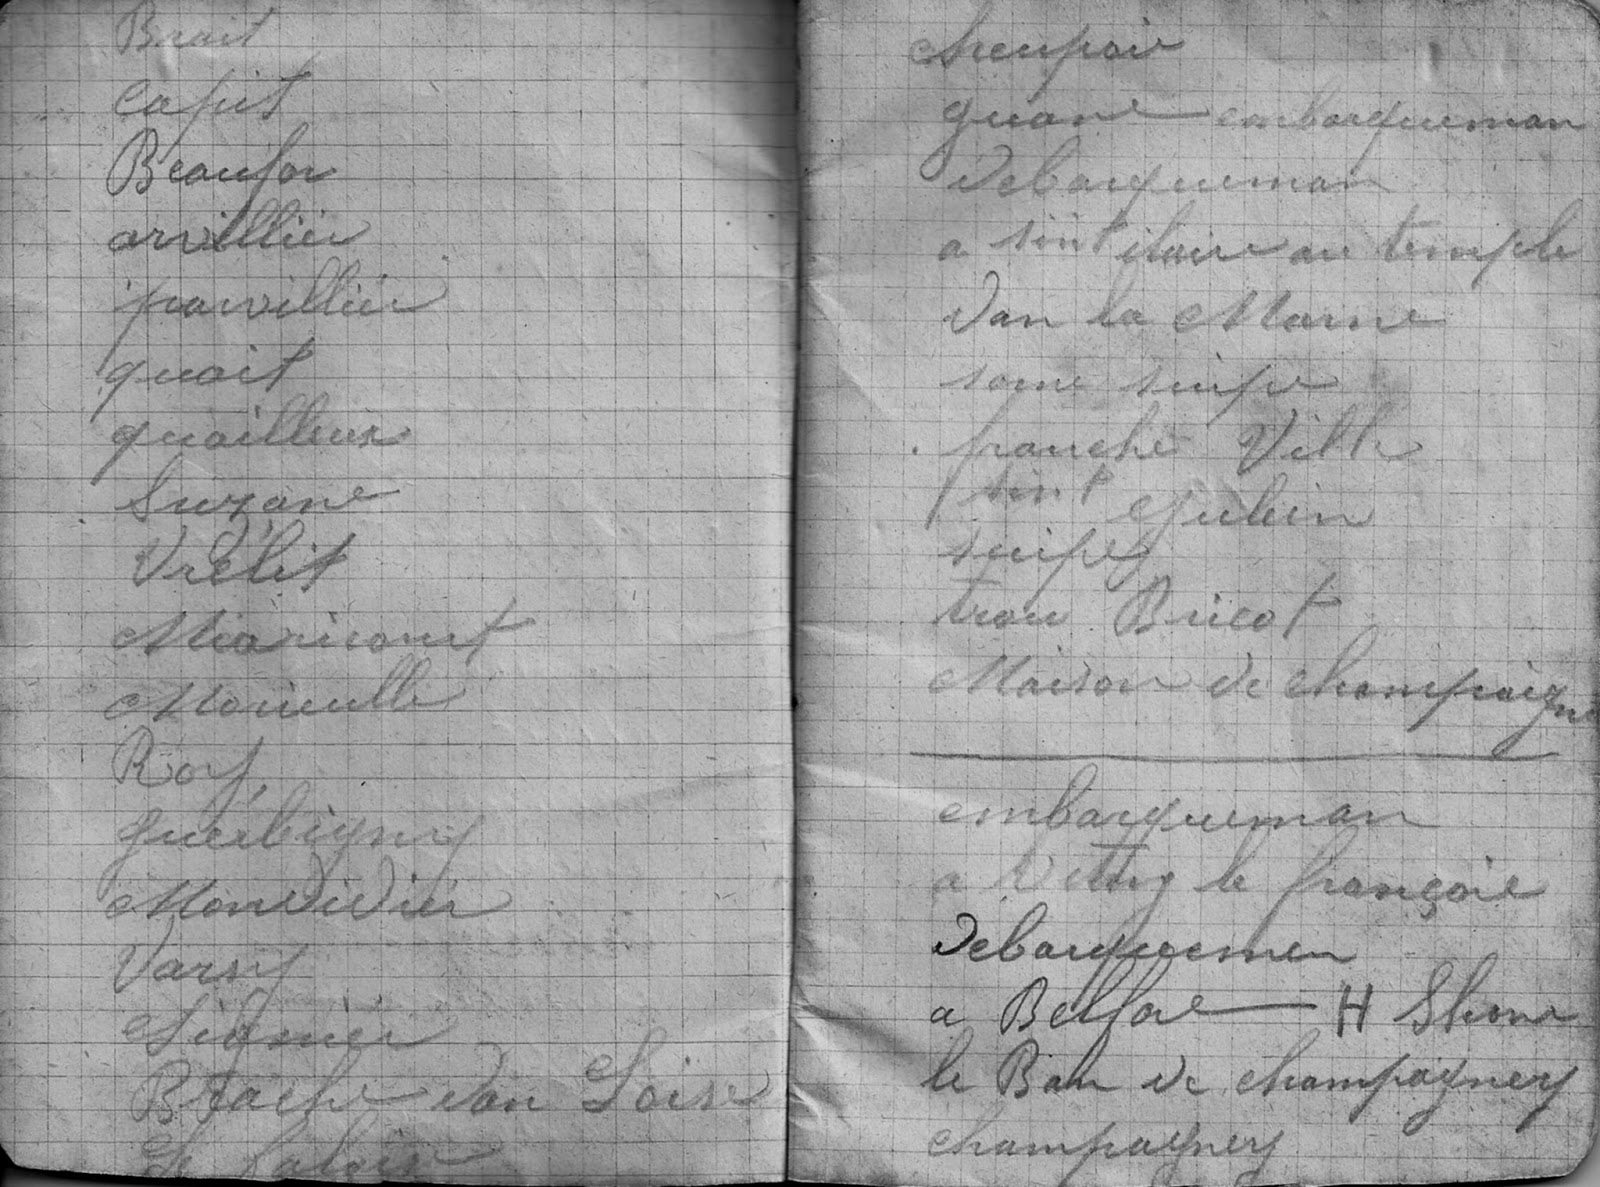 Brait
Capit
Beaufor
arvillier
parvillier
quait
quaillux
Suzane
Vrélit
Maricourt
Morieulle
Roy
guerbigny
Mondidier
Varsy
Brache dan Loise
quane embarqueman
Debarqueman
a sint ilaire au temple
Dan la Marne
some suipe
franche Ville
sint
suipes
trou Bricot
Maison de champaigne
embarqueman
a Vitry le françoie
Debarquemen
a Belfore H Shone
le Ban de champagney
champagney